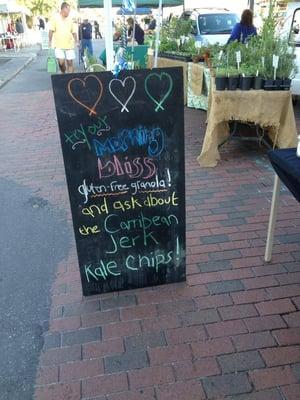 try our
Morning
bliss
gluten-free granola!
and ask about
the Carribean
Jerk
Kale Chips!